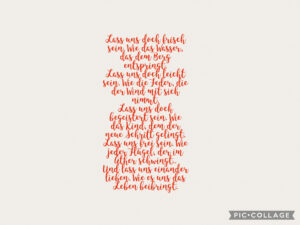 Lass uns doch frisch
sein. Wie das Wasser,
das dem Berg
entspringt.
Lass uns doch leicht
sein. Wie die Feder, die
der Wind mit sich
nimmt.
Lass uns doch
begeistert sein. Wie
das Kind, dem der
neue Schritt gelingt.
Lass uns frei sein. Wie
jeder Flügel, der im
Äther schwingt.
Und lass uns einander
lieben. Wie es uns das
Leben beibringt.
PIC•COLLAGE